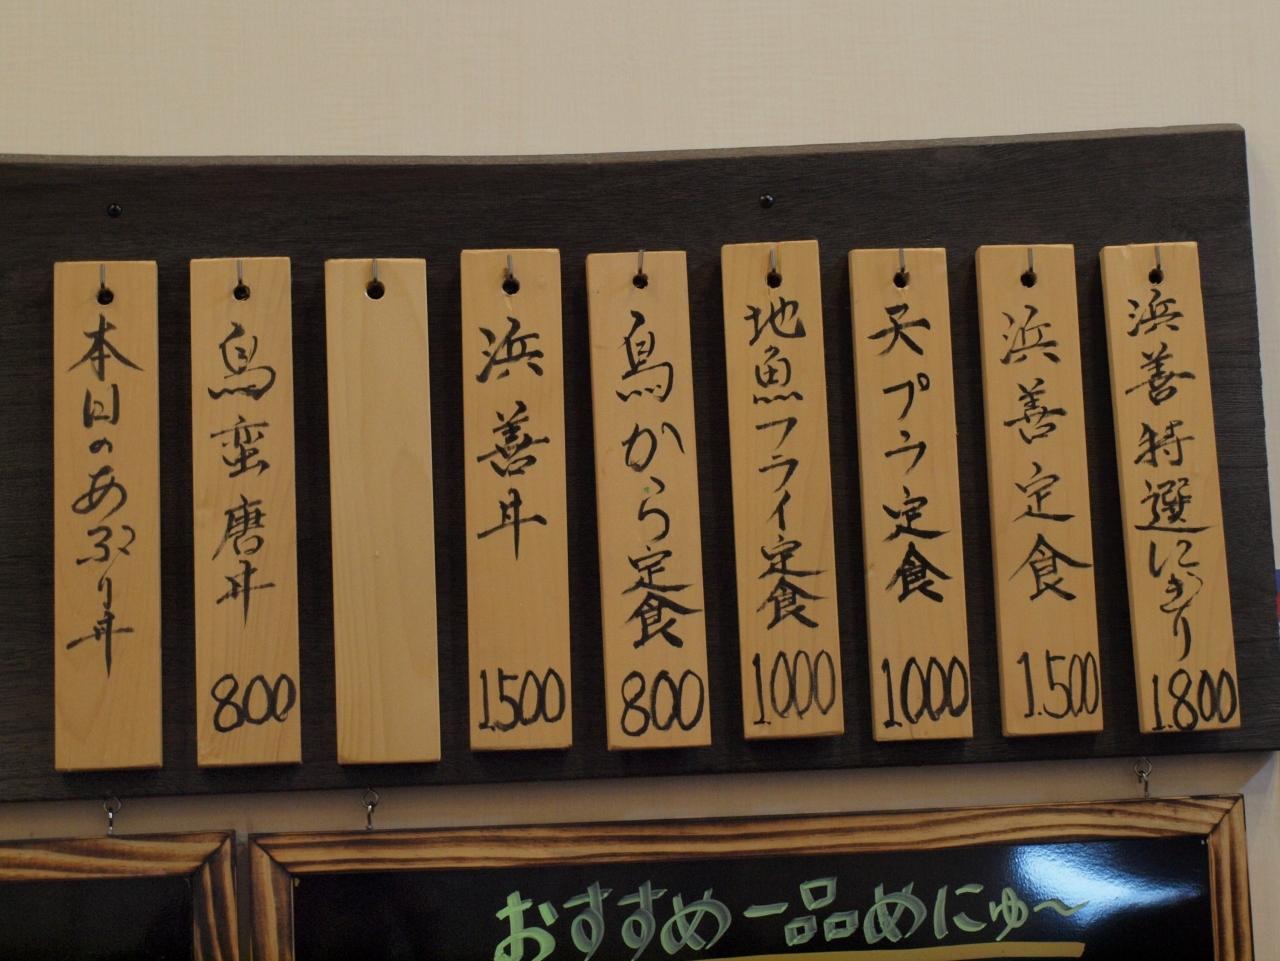 浜善特選にぎり
1.800
浜善定食
1.500
天プラ定食
1000
地魚フライ定食
1000
鳥から定食
800
浜善丼
1.500
鳥蛮唐丼
800
本日のあぶり丼
おすすめ一品めにゅ〜